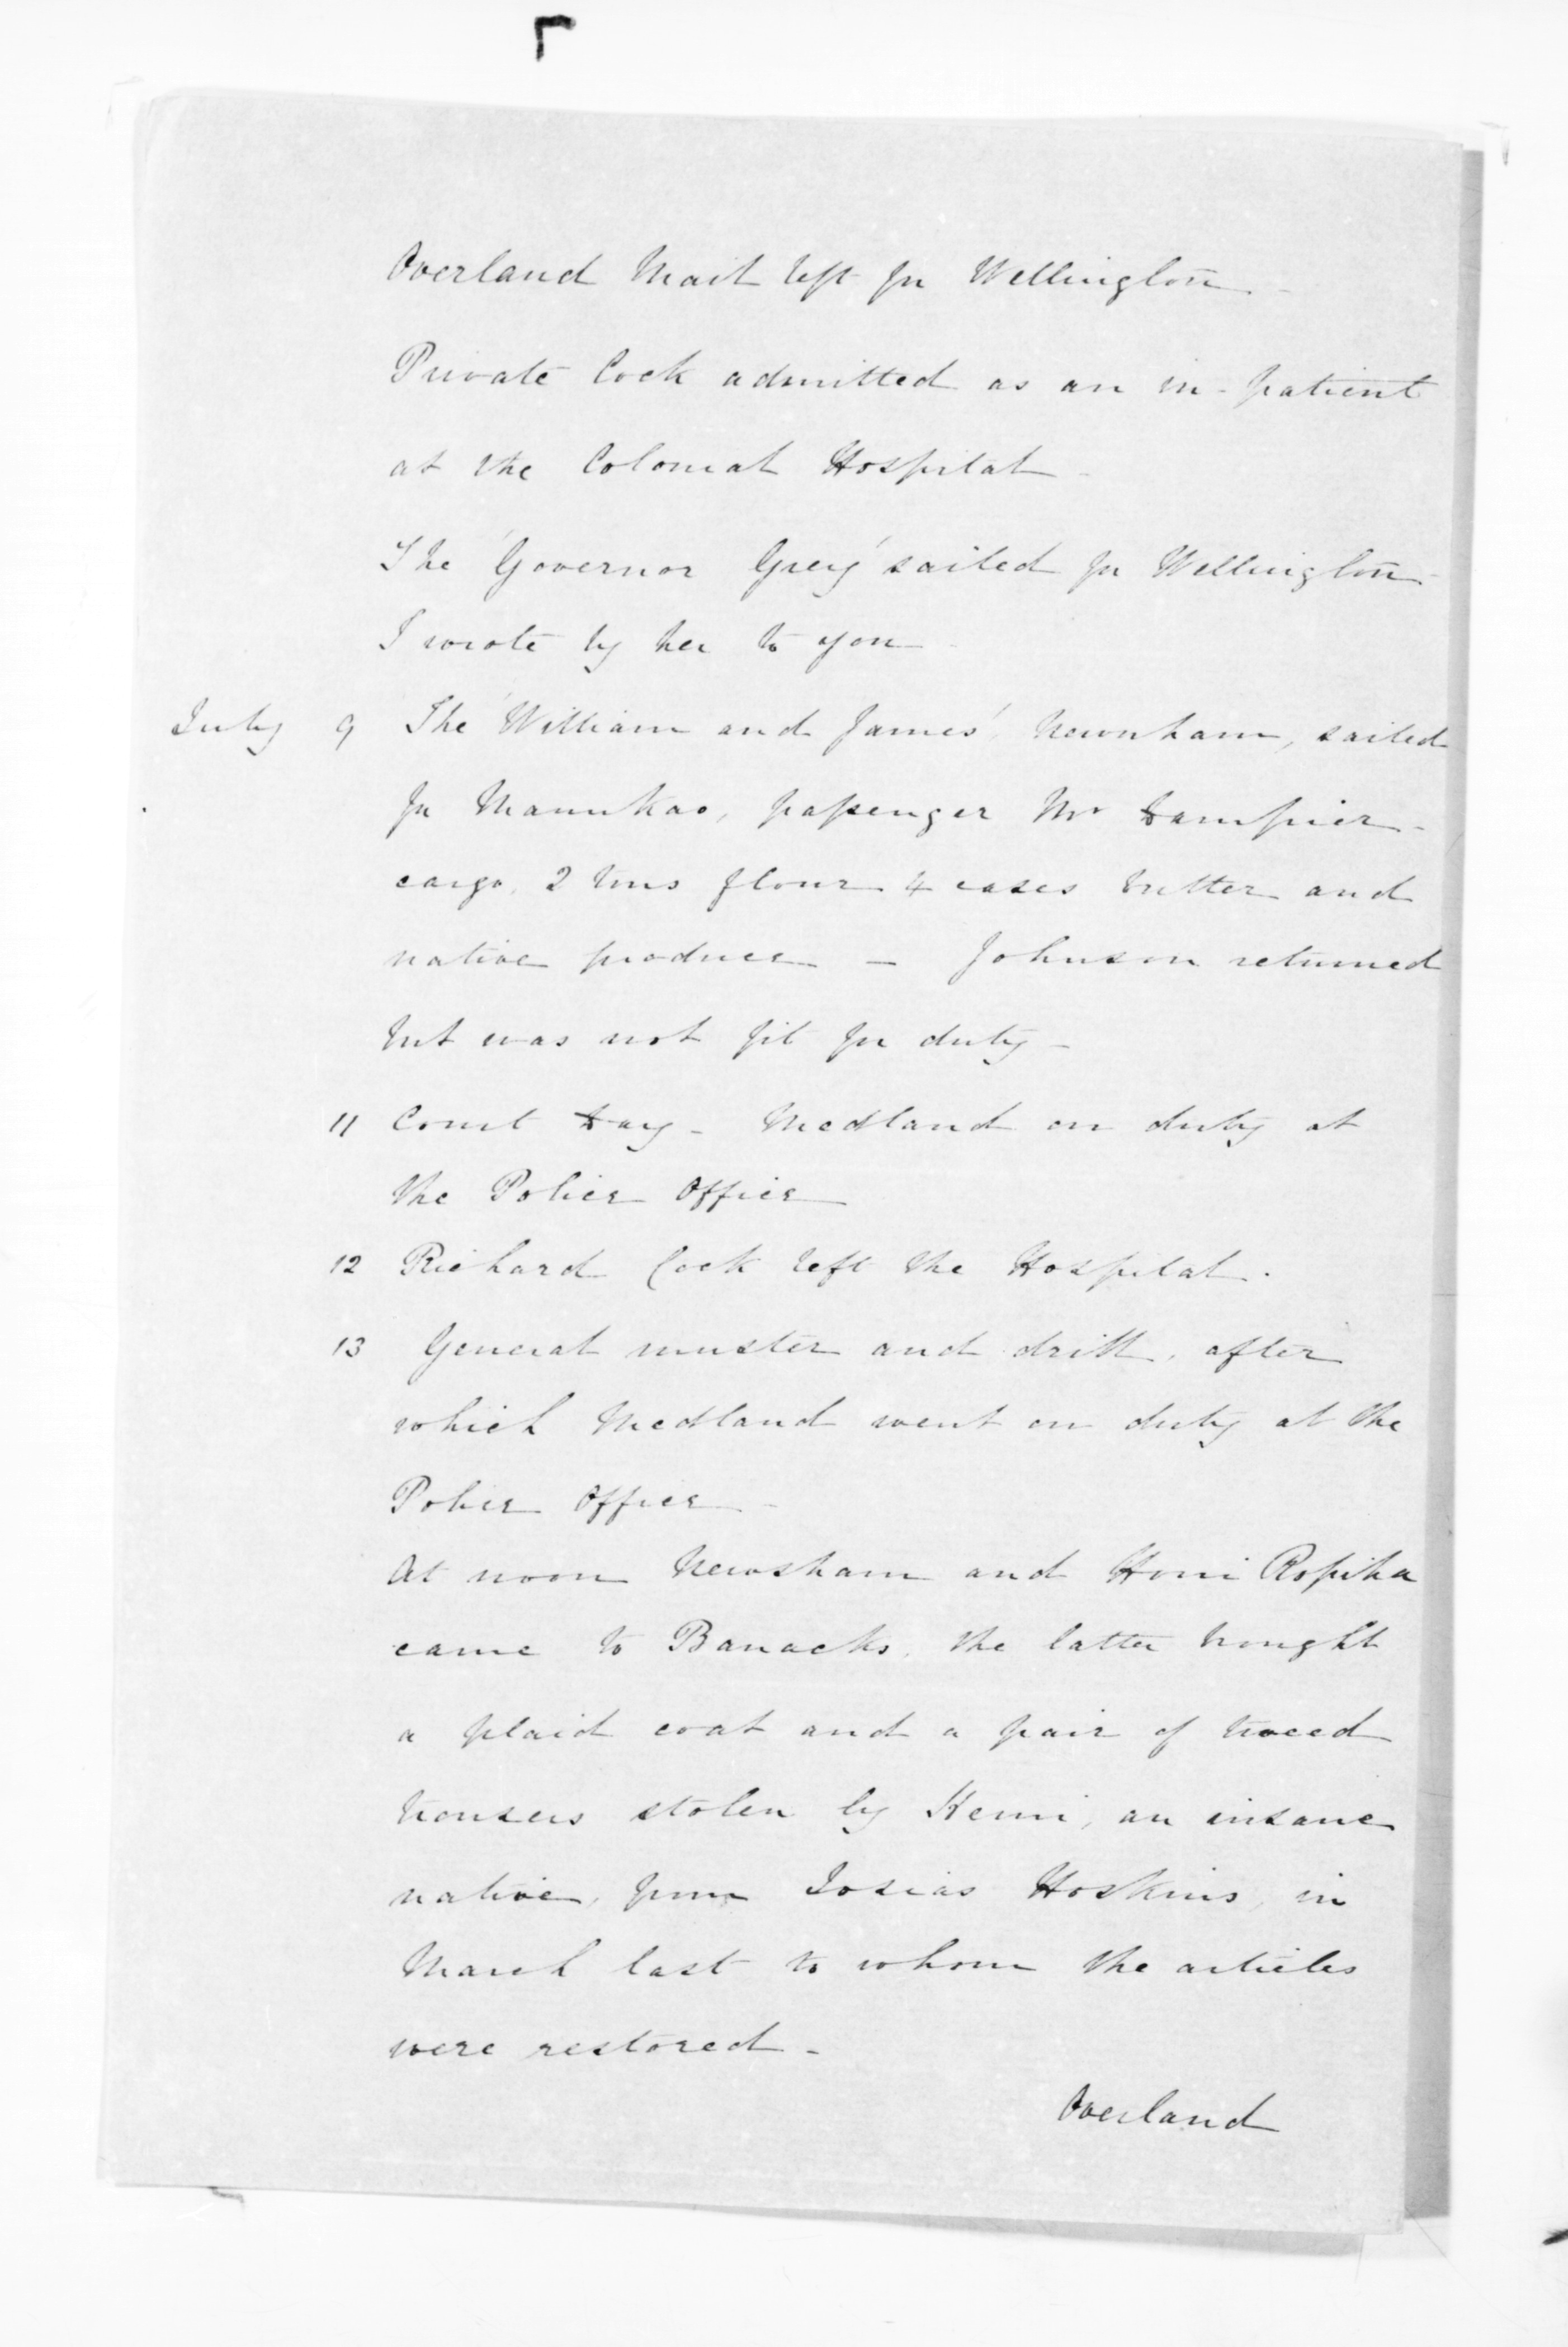 Overland Mail left for Wellington -
Private Cock admitted as an in-patient
at the Colonial Hospital -
The 'Governor Grey' sailed for Wellington -
I wrote by her to you -
July 9 The 'William and James', Newnham, sailed
for Manukao, passenger Mr Dampier -
cargo, 2 tons flour 4 cases butter and
native produce - Johnson returned
but was not fit for duty -
11 Court Day - Medland on duty at
the Police Office
12 Richard Cock left the Hospital.
13 General muster and drill, after
which Medland went on duty at the
Police Office -
At noon Newsham and Honi Ropiha
came to Barracks, the latter brought
a plaid coat and a pair of tweed
trousers stolen by Kemi, an insane
native, from Josias Hoskins, in
March last to whom the articles
were restored -
Overland